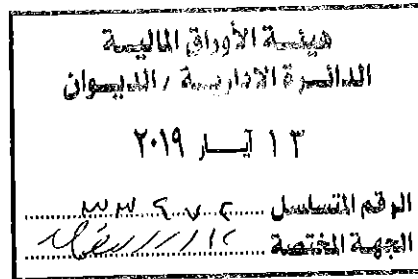 هيئة الأوراق المالية
الدائرة الادارية / الديوان
١٣ آيار ٢٠١٩
الرقم المتسلسل
الجهة المختصة